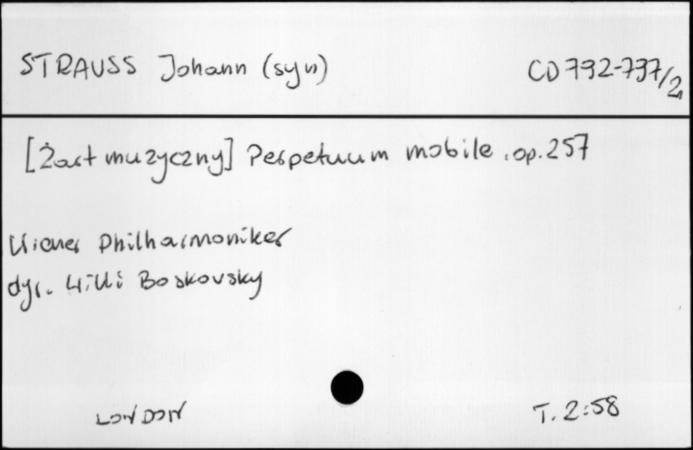 STRAUSS Johann (syn) CD 792-797/2
[Żart muzyczny] Perpetuum mobile, op. 257
Wiener Philharmoniker
dyr. Willi Boskovsky
LONDON T. 2:58